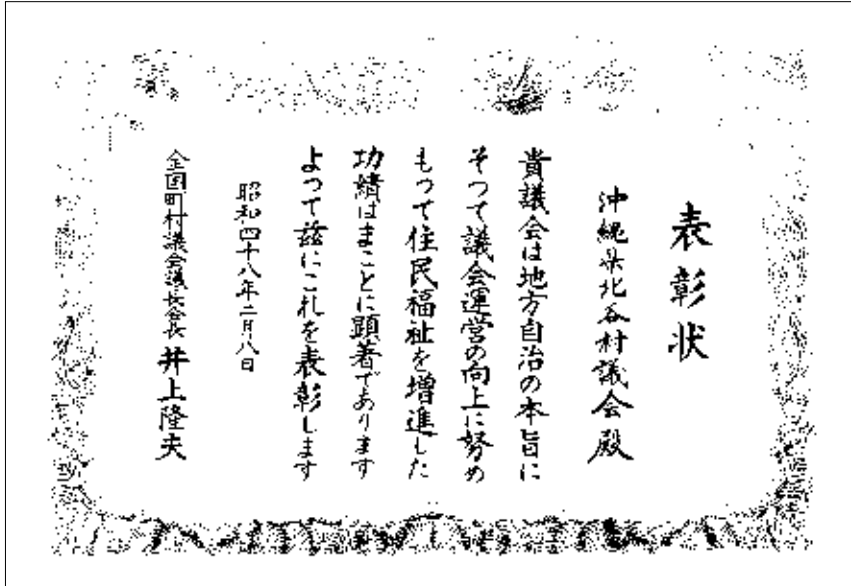 表彰状
沖縄県北谷村議会殿
貴議会は地方自治の本旨に
そつて議会運営の向上に努め
もつて住民福祉を増進した
功績はまことに顕著であります
よつて茲にこれを表彰します
昭和四十八年二月八日
全国町村議会議長会長 井上隆夫